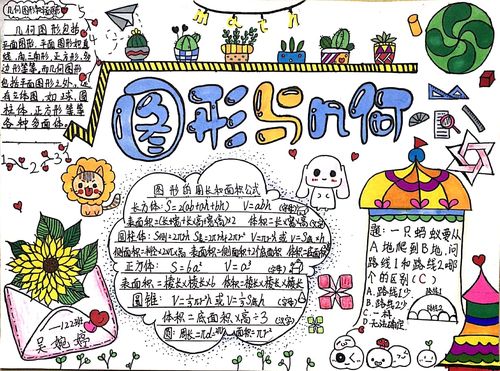 几何图形和按语
math
几何图形包括
平面图形,平面图形如直
线,角,三角形,正方形,多
边形等等,而几何图形
包括平面图形之外,还
有立体图,如球,圆
柱体,正方形等等
各种多面体。
图形与几何
1~2~3~
图形的周长和面积公式
长方体:S=2(ab+ah+bh) V=abh (字母)
表面积=(长×宽+长×高+宽×高)×2 体积=长×宽×高
圆柱体:S侧=2πrh S表=2πrh+2πr² V=πr²h 或 V=S底×h
侧面积=底面周长×高 表面积=侧面积+2个底面积 体积=底面积×高
正方体:S=6a² V=a³ (字母)
表面积=棱长×棱长×6 体积=棱长×棱长×棱长
圆锥:V=⅓πr²h 或 V=⅓S底h (字母)
体积=底面积×高÷3 (汉字)
圆:周长=πd=2πr 面积=πr²
题:一只蚂蚁要从
A地爬到B地,问
路线1和路线2哪
个的区别(C)
A.路线1少
B.路线2少
C.一样
D.无法确定
路线1
路线2
122班